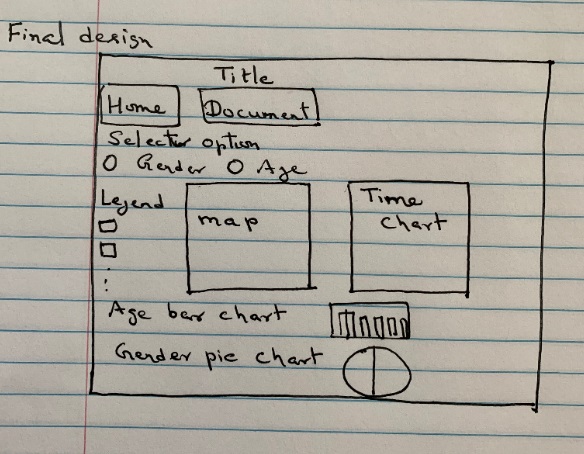 Final design
Title
Home
Document
Selector option
O Gender O Age
Legend
map
Time
chart
Age bar chart
Gender pie chart